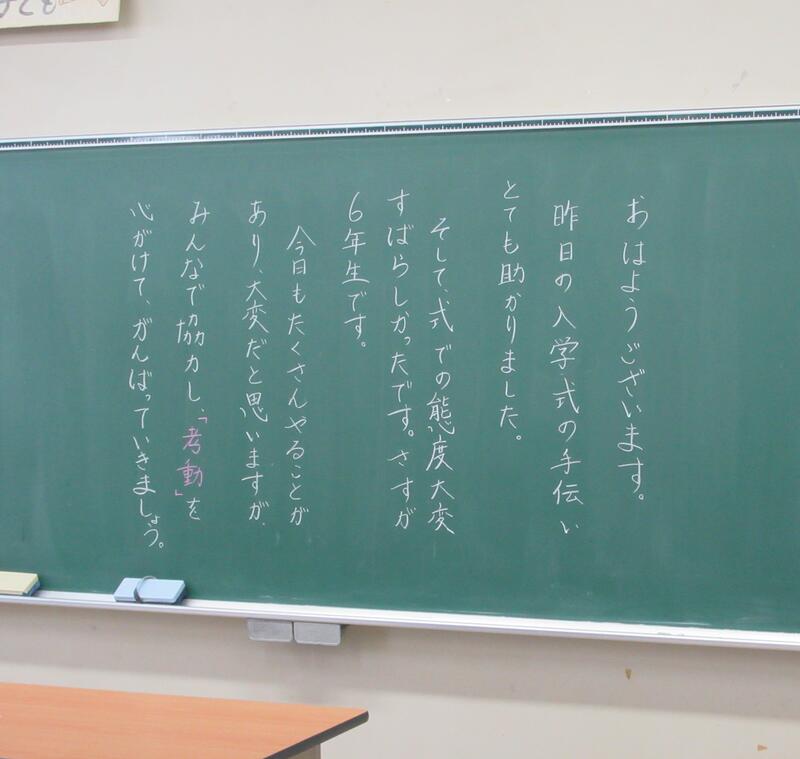 おはようございます。
昨日の入学式の手伝い
とても助かりました。
そして、式での態度大変
すばらしかったです。さすが
6年生です。
今日もたくさんやることが
あり、大変だと思いますが、
みんなで協力し、「考動」を
心がけて、がんばっていきましょう。